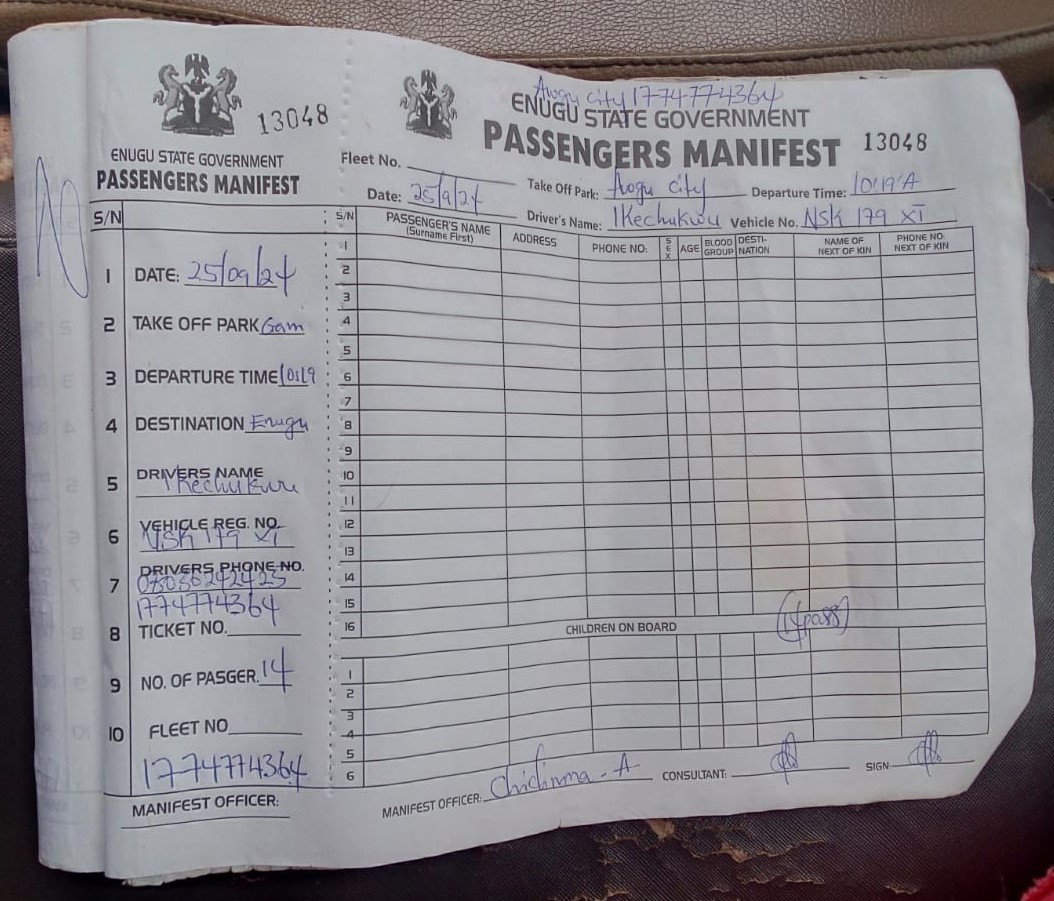 13048
ENUGU STATE GOVERNMENT
PASSENGERS MANIFEST
S/N
1 DATE: 25/09/24
2 TAKE OFF PARK Gam
3 DEPARTURE TIME 10:19
4 DESTINATION Enugu
5 DRIVERS NAME
Ikechukwu
6 VEHICLE REG. NO.
NSK 179 XI
7 DRIVERS PHONE NO.
1774774364
8 TICKET NO.
9 NO. OF PASGER. 14
10 FLEET NO
1774774364
MANIFEST OFFICER:
city 1774774364
ENUGU STATE GOVERNMENT
PASSENGERS MANIFEST 13048
Fleet No.
Date: 25/9/24 Take Off Park: city Departure Time: 10:19 A
Driver's Name: Ikechukwu Vehicle No. NSK 179 XI
S/N PASSENGER'S NAME (Surname First) ADDRESS PHONE NO: SEX AGE BLOOD GROUP DESTI-NATION NAME OF NEXT OF KIN PHONE NO. NEXT OF KIN
1
2
3
4
5
6
7
8
9
10
11
12
13
14
15
16 CHILDREN ON BOARD 14 pass
1
2
3
4
5
6
MANIFEST OFFICER: Chidinma - A CONSULTANT: SIGN